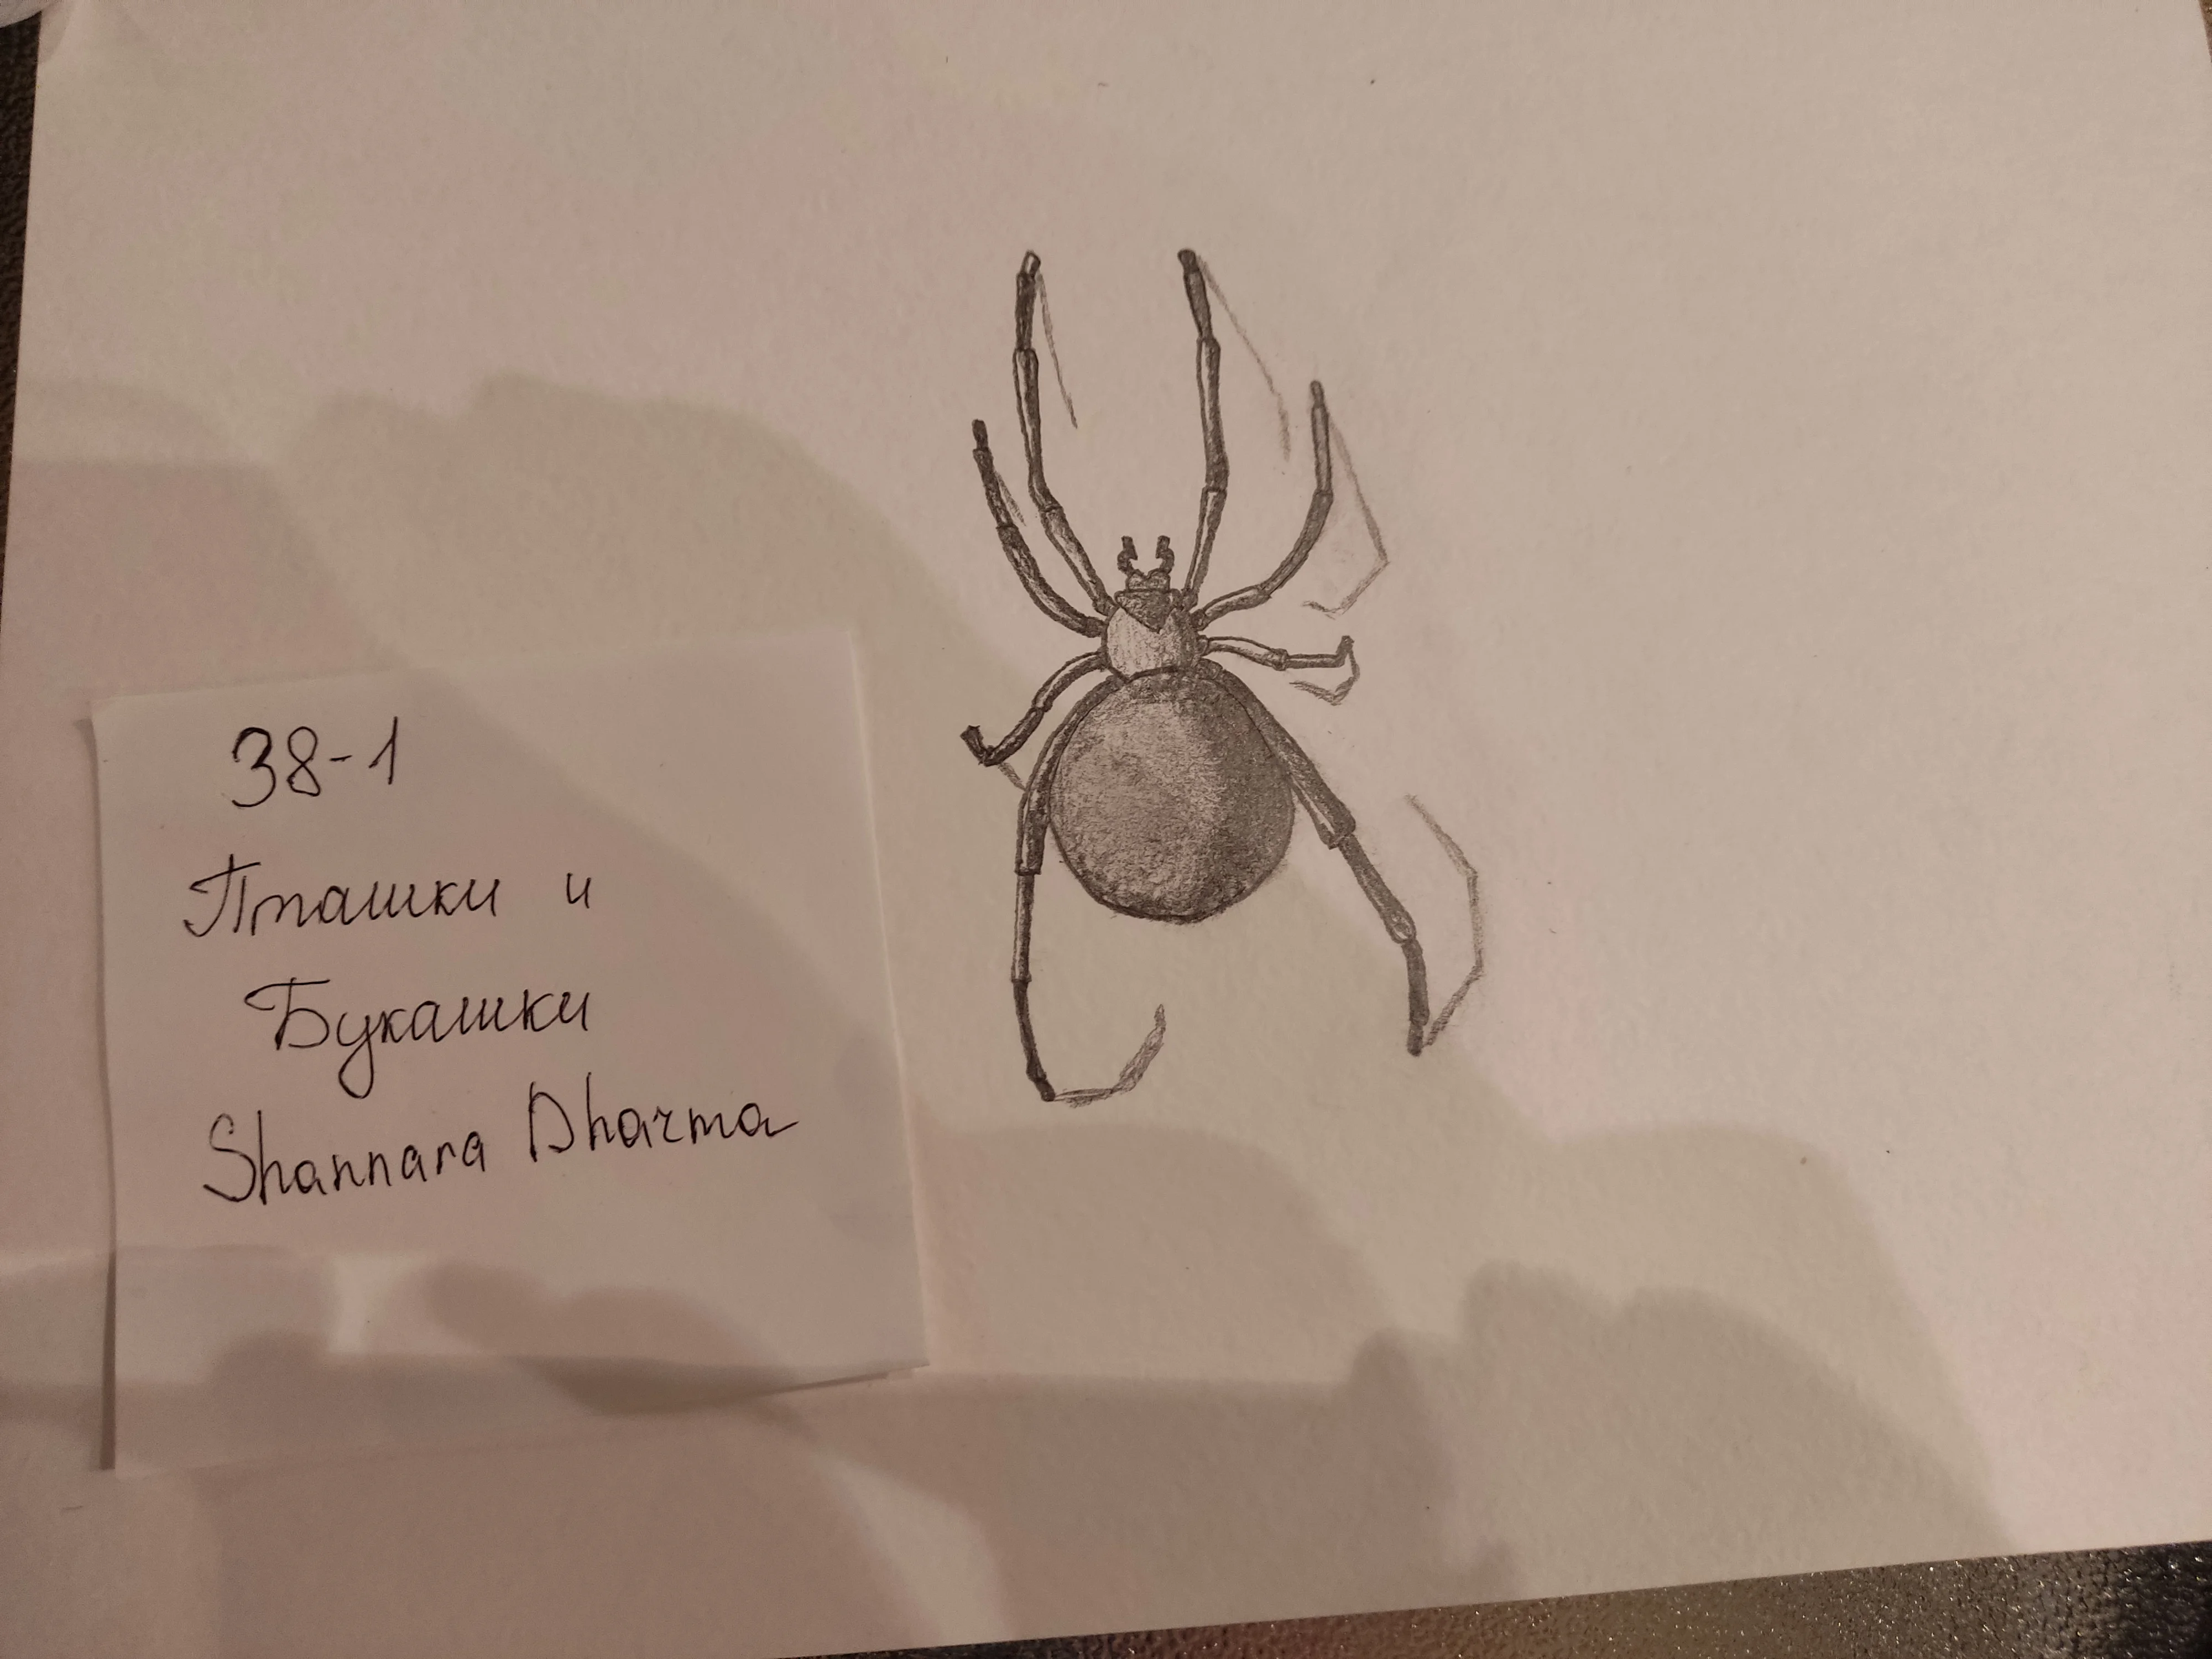 38-1
Пташки и
Букашки
Shannara Dharma